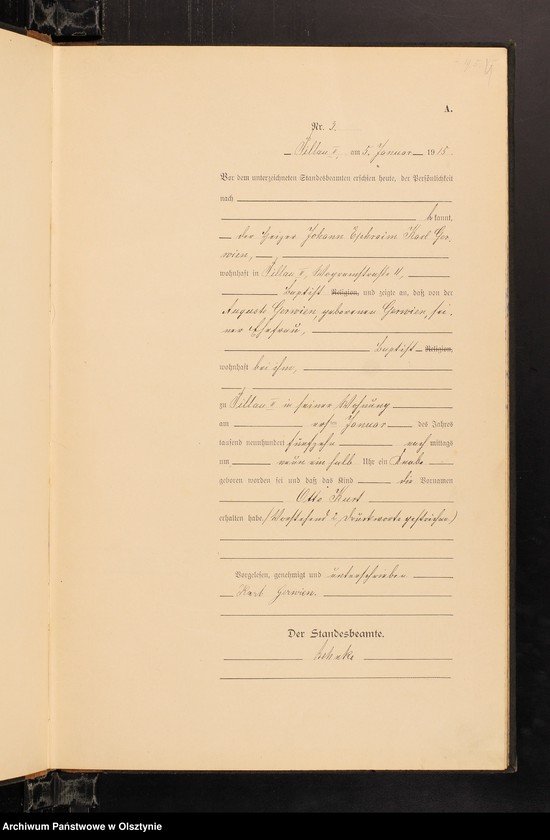 A.
Nr. 3.
Pillau II, am 5. Januar 1915.
Vor dem unterzeichneten Standesbeamten erschien heute, der Persönlichkeit
nach
bekannt,
der Heizer Johann Ephraim Karl Ger-
wien,
wohnhaft in Pillau II, Wogramstraße 11,
Baptist Religion, und zeigte an, daß von der
Auguste Gerwien, geborenen Gerwien, sei-
ner Ehefrau,
Baptist Religion,
wohnhaft bei ihm,
zu Pillau II in seiner Wohnung
am ersten Januar des Jahres
tausend neunhundert fünfzehn nach mittags
um neun ein halb Uhr ein Knabe
geboren worden sei und daß das Kind die Vornamen
Otto Kurt
erhalten habe. (Vorstehend 2 Druckworte gestrichen)
Vorgelesen, genehmigt und unterschrieben
Karl Gerwien.
Der Standesbeamte.
Archiwum Państwowe w Olsztynie